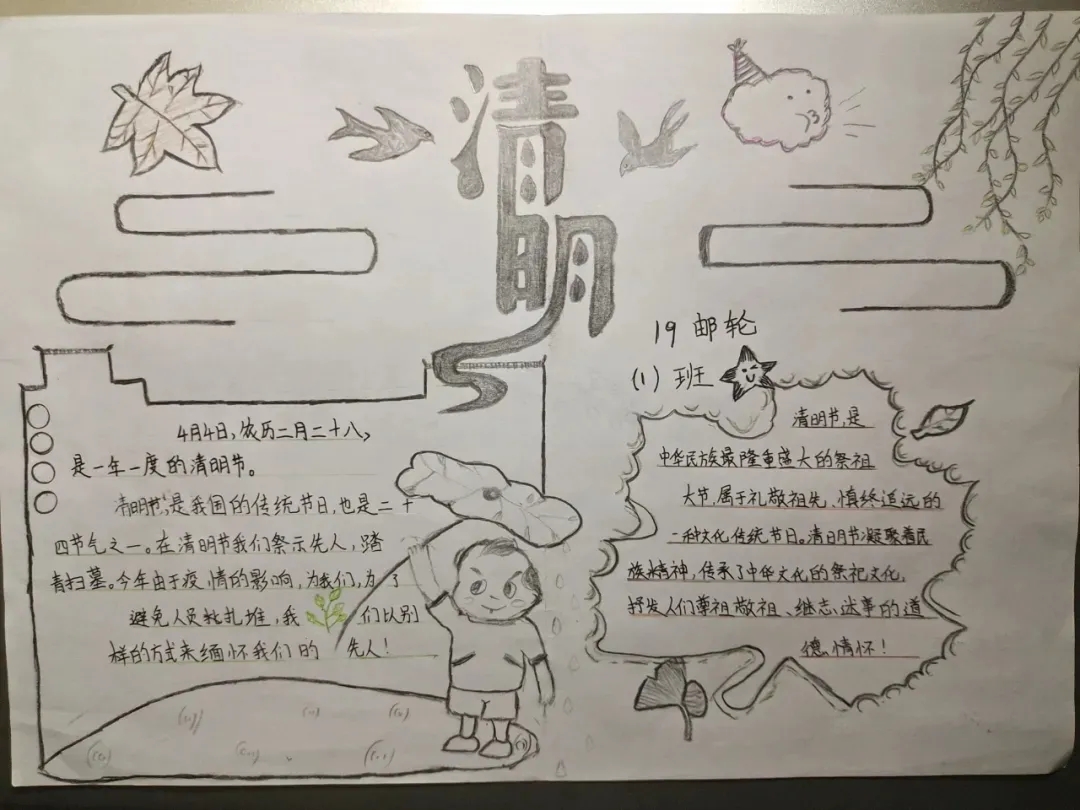 清明
19邮轮
(1)班
4月4日,农历二月二十八,
是一年一度的清明节。
清明节,是我国的传统节日,也是二十
四节气之一。在清明节我们祭示先人,踏
青扫墓。今年由于疫情的影响,为我们,为了
避免人员粃扎堆,我们以别
样的方式来缅怀我们的先人!
清明节,是
中华民族最隆重盛大的祭祖
大节,属于礼敬祖先、慎终追远的
一种文化传统节日。清明节凝聚着民
族精神,传承了中华文化的祭祀文化,
抒发人们尊祖敬祖、继志述事的道
德情怀!